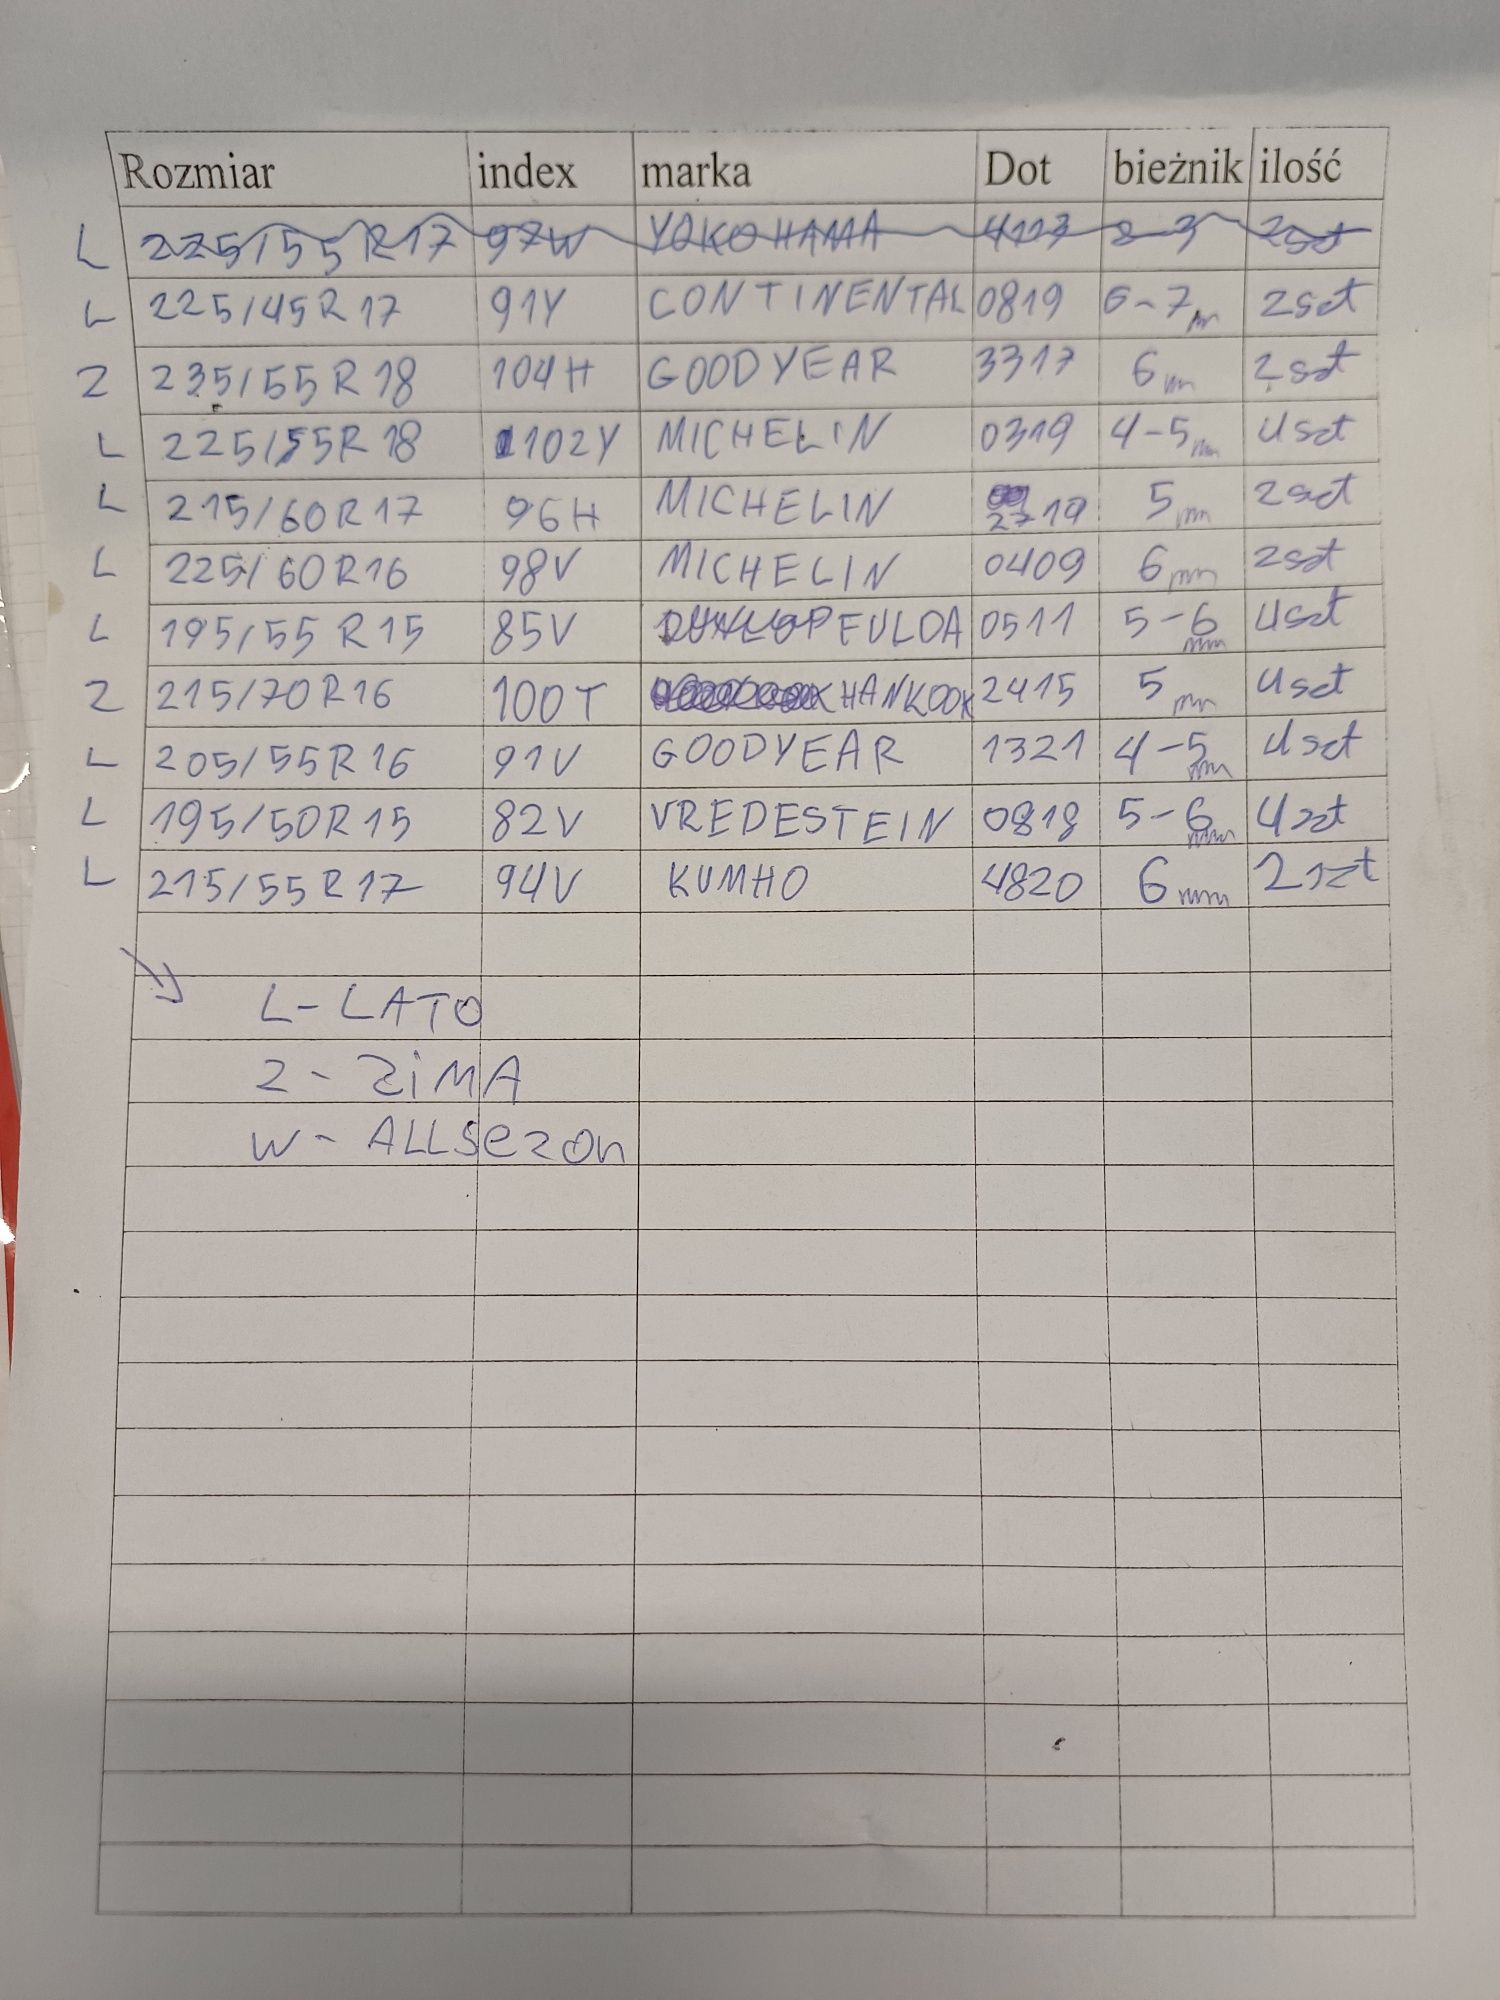 Rozmiar index marka Dot bieżnik ilość
L 225/55 R17 97W YOKOHAMA 4113 2-3 2szt
L 225/45R 17 91Y CONTINENTAL 0819 6-7m 2szt
Z 235/55 R 18 104H GOODYEAR 3317 6m 2szt
L 225/55R 18 102Y MICHELIN 0319 4-5m 4szt
L 215/60R17 96H MICHELIN 2719 5mm 2szt
L 225/60R16 98V MICHELIN 0409 6mm 2szt
L 195/55 R 15 85V DUNLOP FULDA 0511 5-6mm 4szt
Z 215/70R16 100T HANKOOK 2415 5mm 4szt
L 205/55R16 91V GOODYEAR 1321 4-5mm 4szt
L 195/50R15 82V VREDESTEIN 0818 5-6mm 4szt
L 215/55R17 94V KUMHO 4820 6mm 2szt
L-LATO
Z-ZiMA
W-ALLSezon